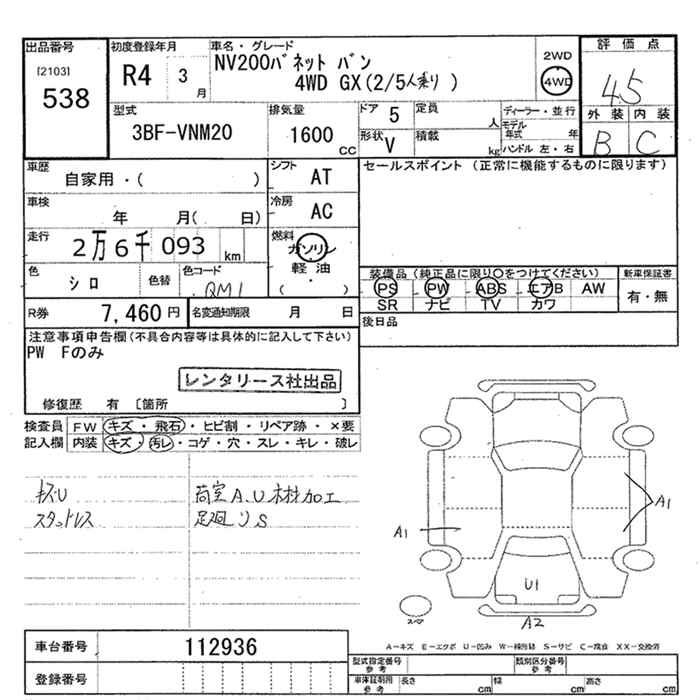 出品番号 初度登録年月 車名・グレード 2WD 評価点
[2103] 538 R4 3月 NV200バネット バン 4WD 4.5
4WD GX(2/5人乗り)
型式 排気量 ドア 5 定員 人 ディーラー・並行 外装 内装
3BF-VNM20 1600 CC 形状 V 積載 kg モデル年式 年 B C
ハンドル 左・右
車歴 シフト セールスポイント (正常に機能するものに限ります)
自家用・( ) AT
車検 年 月( 日) 冷房 AC
走行 2万6千093 km 燃料 ガソリン
軽油
・
( )
色 シロ 色替 色コード QM1
装備品(純正品に限り〇をつけてください) 新車保証書
PS PW ABS エアB AW 有・無
SR ナビ TV カワ
R券 7,460円 名変通知期限 月 日 後日品
注意事項申告欄(不具合内容等は具体的に記入して下さい)
PW Fのみ
レンタリース社出品
修復歴 有 〔箇所 〕
検査員 FW キズ・飛石・ヒビ割・リペア跡・×要
記入欄 内装 キズ・汚レ・コゲ・穴・スレ・キレ・破レ
キズU 荷室A.U木材加工
スタットレス 足廻りS
A1
A1
U1
スペア
A2
A-キズ E-エクボ U-凹み W-補修跡 S-サビ C-腐食 XX-交換済
車台番号 112936
登録番号
型式指定番号 参考 類別区分番号 参考
車庫証明用 参考 長さ cm 幅 cm 高さ cm